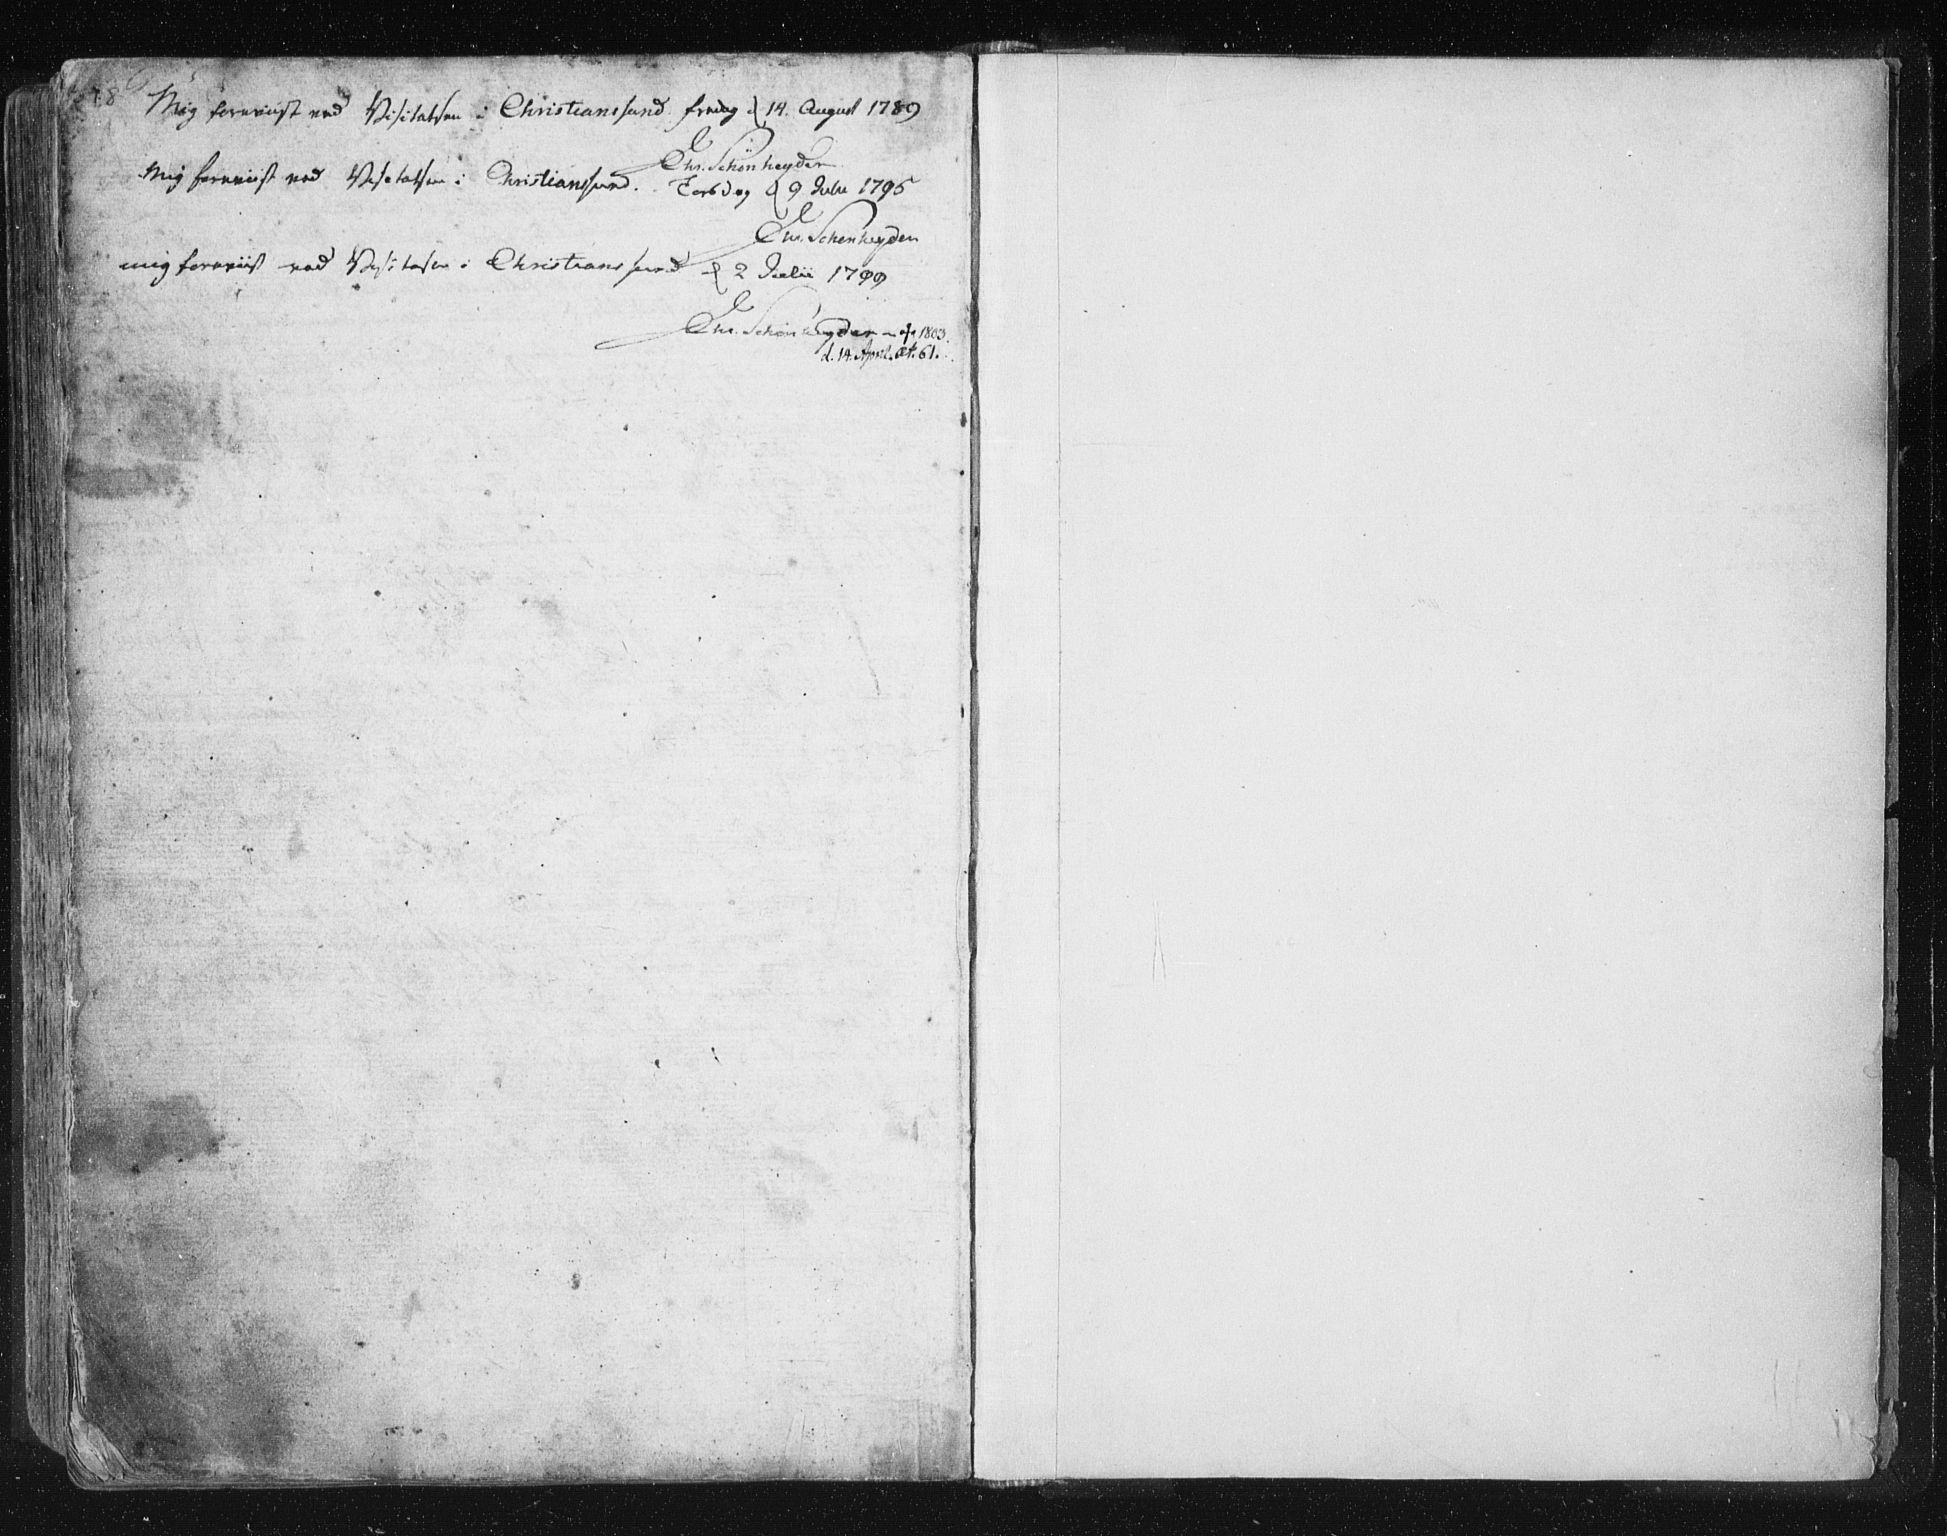 Mig foreviist ved Visitatsen i Christianssund fredag d 14. August 1789
Chr. Schönheyder
Mig foreviist ved Visitatsen i Christianssund. Torsdag d 9 Julii 1795
Chr. Schönheyder
mig foreviist ved Visitatsen i Christianssund d 2 Julii 1799
Chr. Schönheyder – † 1803.
d. 14. April. æt. 61.